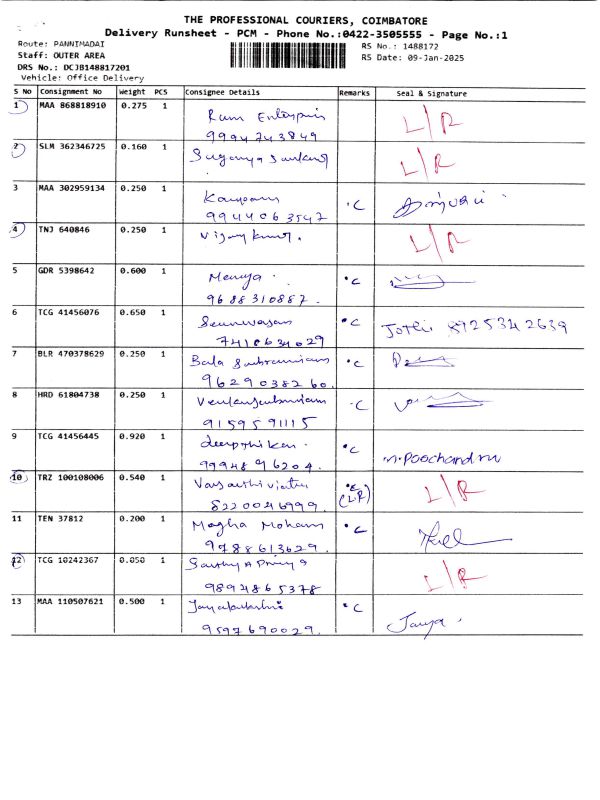 THE PROFESSIONAL COURIERS, COIMBATORE
Delivery Runsheet - PCM - Phone No.:0422-3505555 - Page No.:1
Route: PANNIMADAI RS No.: 1488172
Staff: OUTER AREA RS Date: 09-Jan-2025
DRS No.: DCJB148817201
Vehicle: Office Delivery
S No Consignment No Weight PCS Consignee Details Remarks Seal & Signature
1 MAA 868818910 0.275 1 Ram L/R
9994743849
2 SLM 362346725 0.160 1 Suganya L/R
3 MAA 302959134 0.250 1 °C
9944063547
4 TNJ 640846 0.250 1 Vijaykumar. L/R
5 GDR 5398642 0.600 1 °C
9688310887.
6 TCG 41456076 0.650 1 °C Jothi 8925342639
7410634029
7 BLR 470378629 0.250 1 Bala Subramiam °C
9629038260.
8 HRD 61804738 0.250 1 °C
9159591115
9 TCG 41456445 0.920 1 °C n.Poochandru
9994896204.
10 TRZ 100108006 0.540 1 °C L/R
8220046999. (L.R)
11 TEN 37812 0.200 1 Magha Moham °C
9788613629.
12 TCG 10242367 0.050 1 L/R
9894865378
13 MAA 110507621 0.500 1 °C Jaya.
9597690029.